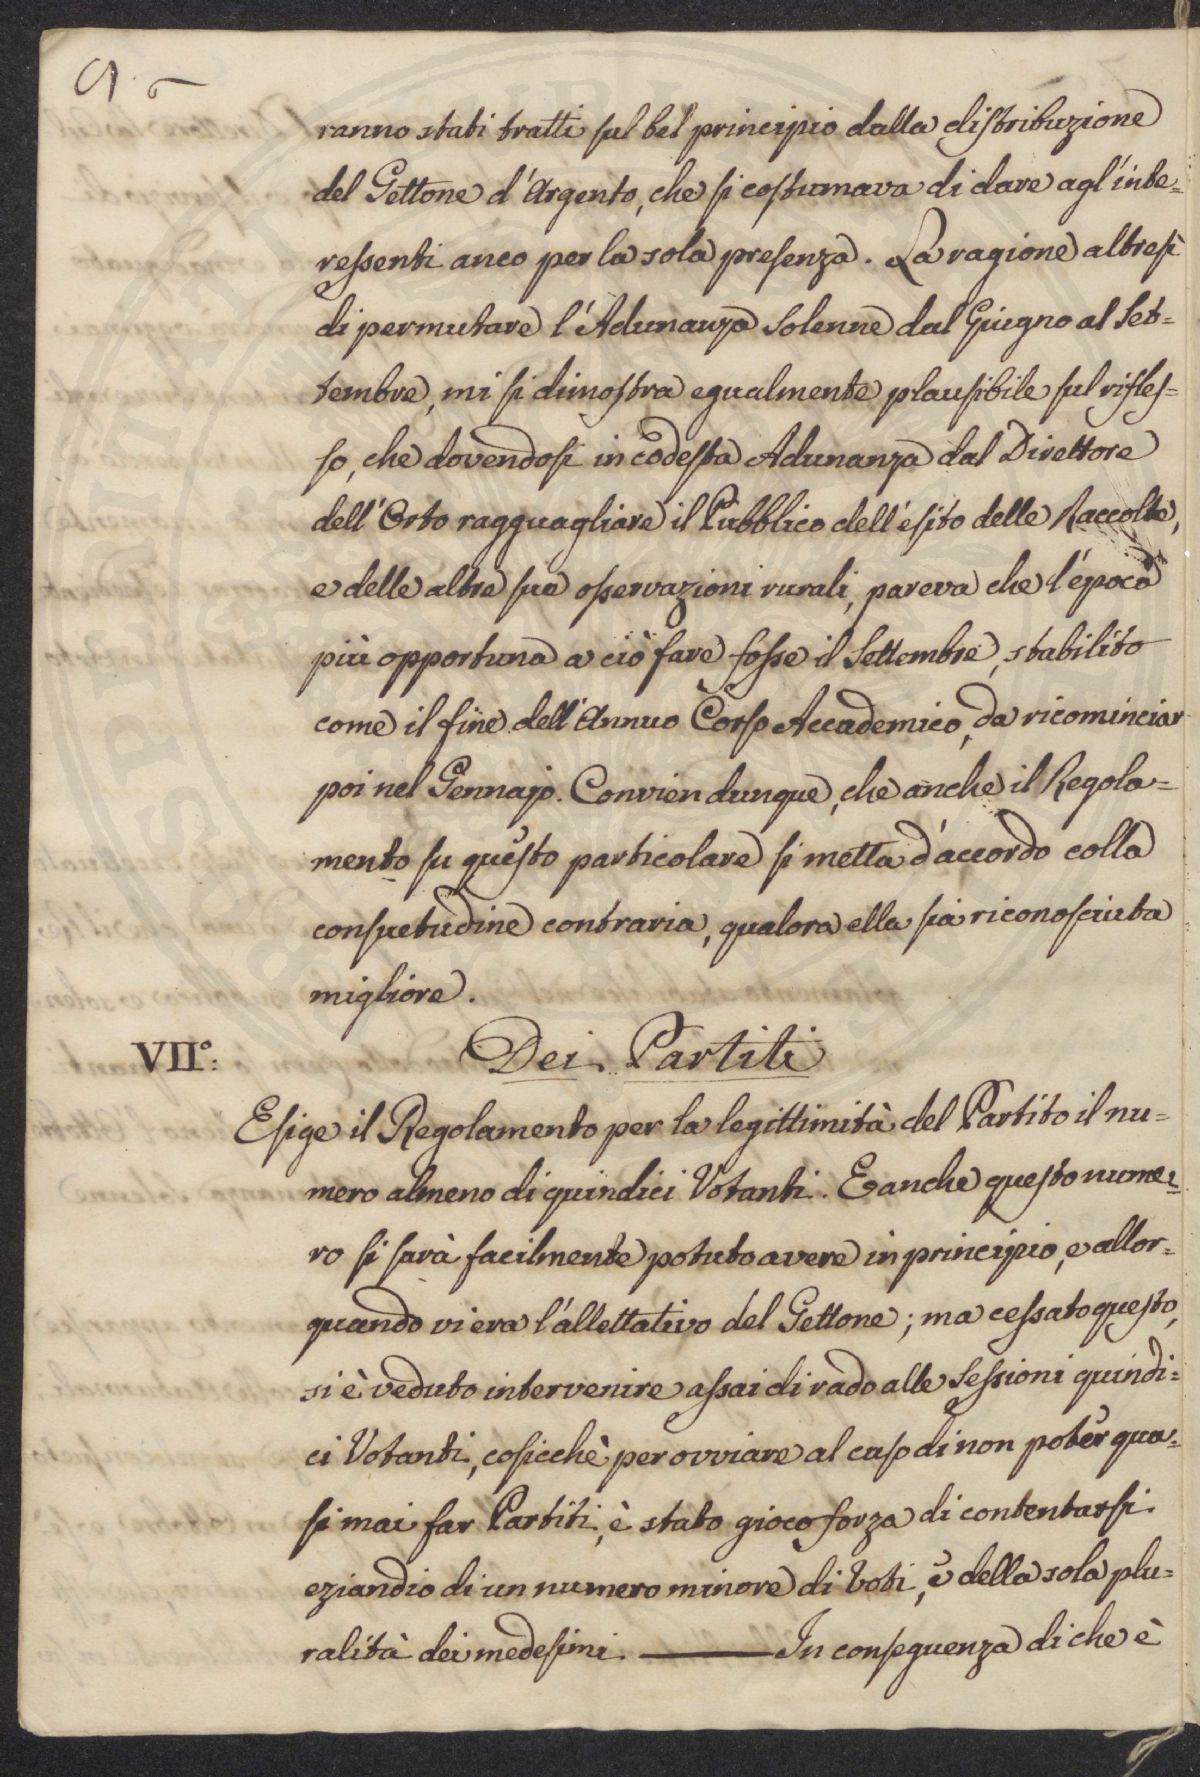 ranno stati tratti sul bel principio dalla distribuzione
del Gettone d'Argento, che si costumava di dare agl'inte=
ressenti anco per la sola presenza. La ragione altresì
di permutare l'Adunanza Solenne dal Giugno al Set=
tembre, mi si dimostra egualmente plausibile sul rifles=
so, che dovendosi in codesta Adunanza dal Direttore
dell'Orto ragguagliare il Pubblico dell'esito delle Raccolte,
e delle altre sue osservazioni rurali, pareva che l'época
più opportuna a ciò fare fosse il Settembre, stabilito
come il fine dell'Annuo Corso Accademico, da ricominciar
poi nel Gennajo. Convien dunque, che anche il Regola=
mento su questo particolare si metta d'accordo colla
consuetudine contraria, qualora ella sia riconosciuta
migliore.
VII°: Dei Partiti
Esige il Regolamento per la legittimità del Partito il nu=
mero almeno di quindici Votanti. E anche questo nume=
ro si sarà facilmente potuto avere in principio, e allor=
quando vi era l'allettativo del Gettone; ma cessato questo,
si è veduto intervenire assai di rado alle Sessioni quindi=
ci Votanti, cosicchè per ovviare al caso di non poter qua=
si mai far Partiti, è stato gioco forza di contentarsi
eziandio di un numero minore di Voti, e della sola plu=
ralità dei medesimi. ——— In conseguenza di che è